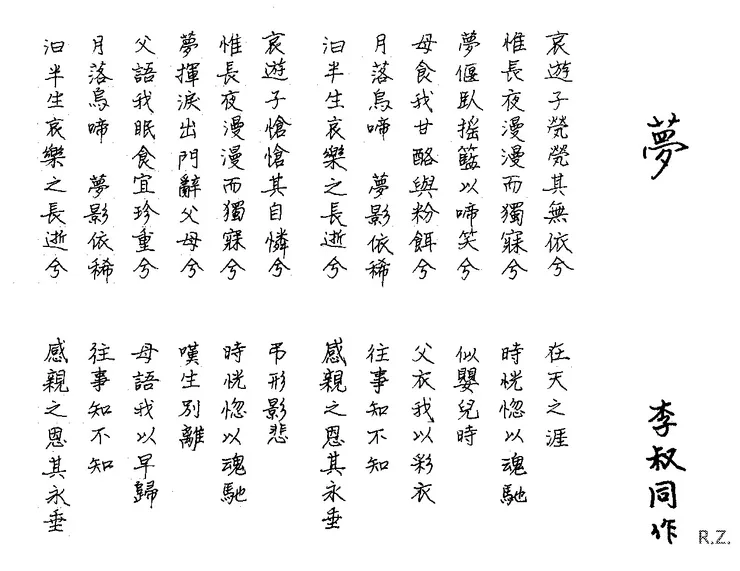 夢
李叔同作
R.Z.
哀遊子煢煢其無依兮 在天之涯
惟長夜漫漫而獨寐兮 時恍惚以魂馳
夢偃臥搖籃以啼笑兮 似嬰兒時
母食我甘酪與粉餌兮 父衣我以彩衣
月落烏啼 夢影依稀 往事知不知
汩半生哀樂之長逝兮 感親之恩其永垂
哀遊子愴愴其自憐兮 吊形影悲
惟長夜漫漫而獨寐兮 時恍惚以魂馳
夢揮淚出門辭父母兮 嘆生別離
父語我眠食宜珍重兮 母語我以早歸
月落烏啼 夢影依稀 往事知不知
汩半生哀樂之長逝兮 感親之恩其永垂